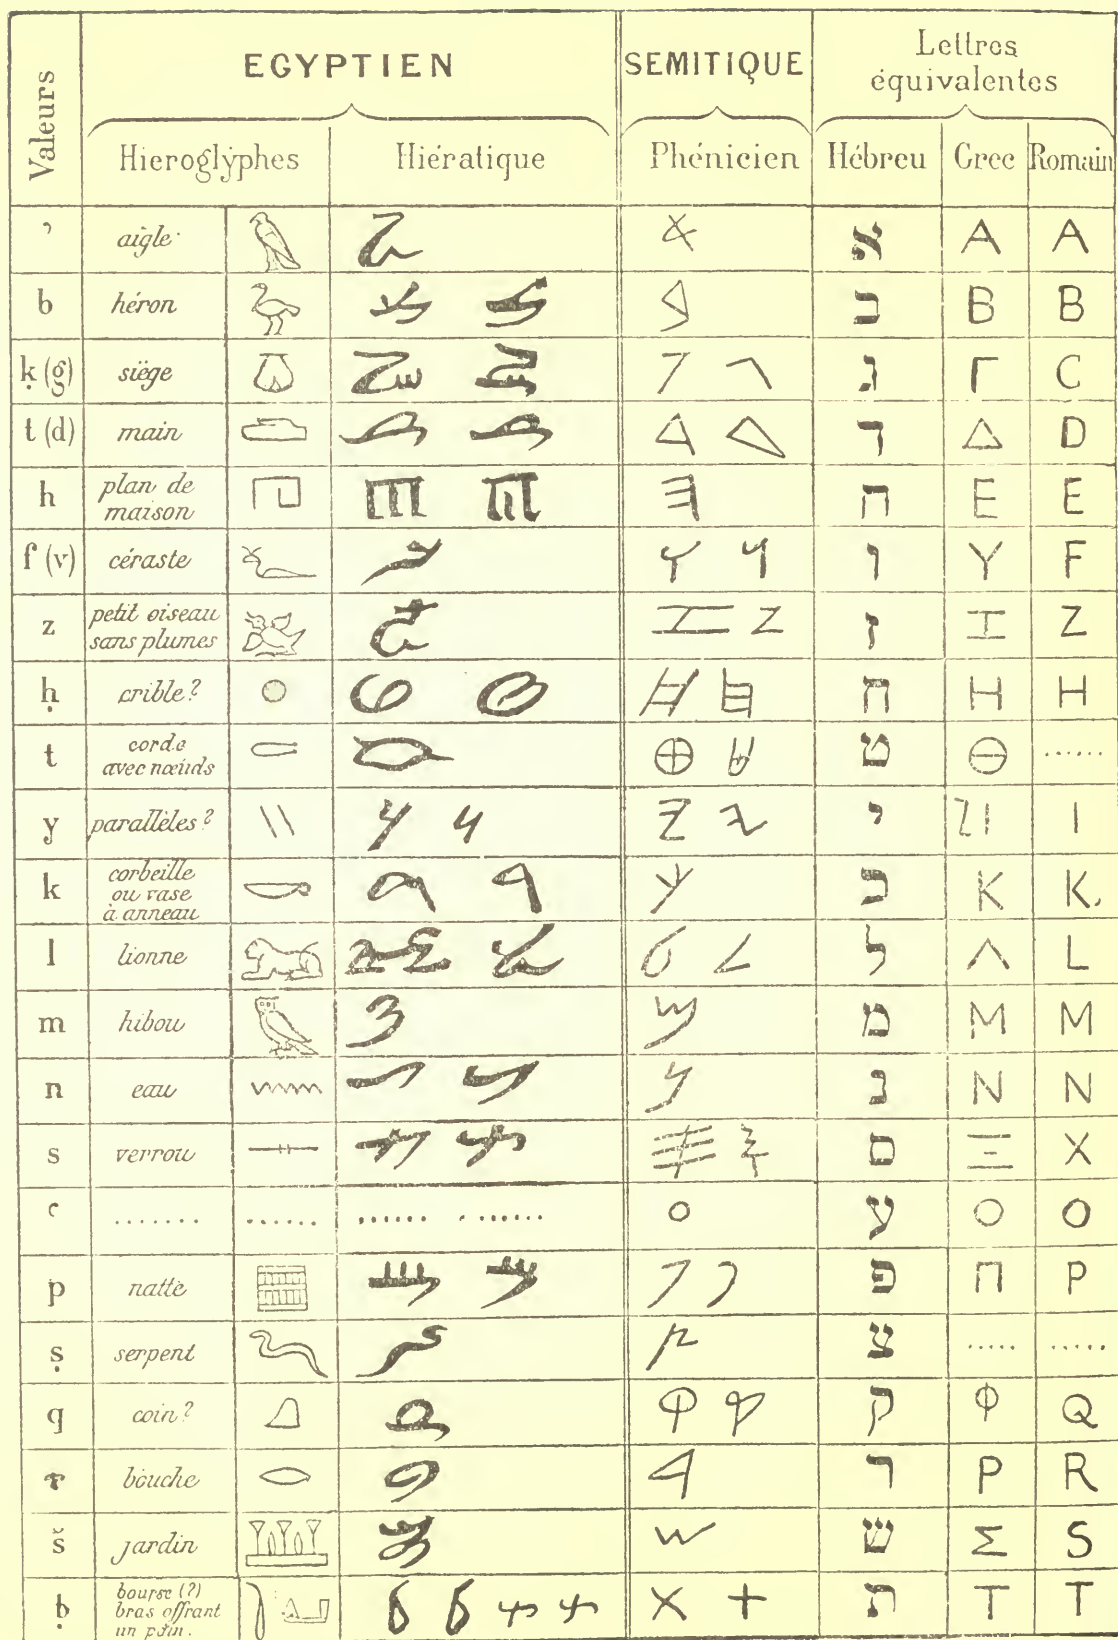 Valeurs EGYPTIEN SEMITIQUE Lettres équivalentes
Hieroglyphes Hiératique Phénicien Hébreu Grec Romain
ʾ aigle א A A
b héron כ B B
ḳ (g) siège ג Γ C
t (d) main ד Δ D
h plan de maison ח E E
f (v) céraste ו Y F
z petit oiseau sans plumes ז Ι Z
ḥ crible? ח H H
t corde avec nœuds ט Θ ......
y parallèles? י I I
k corbeille ou vase à anneau כ K K.
l lionne ל Λ L
m hibou מ M M
n eau נ N N
s verrou ם Ξ X
ʿ ....... ...... ...... ....... ע O O
p natte פ Π P
ṣ serpent צ ..... .....
q coin? ק Φ Q
r bouche ר P R
š jardin ש Σ S
bourse (?) bras offrant un pain. ת T T